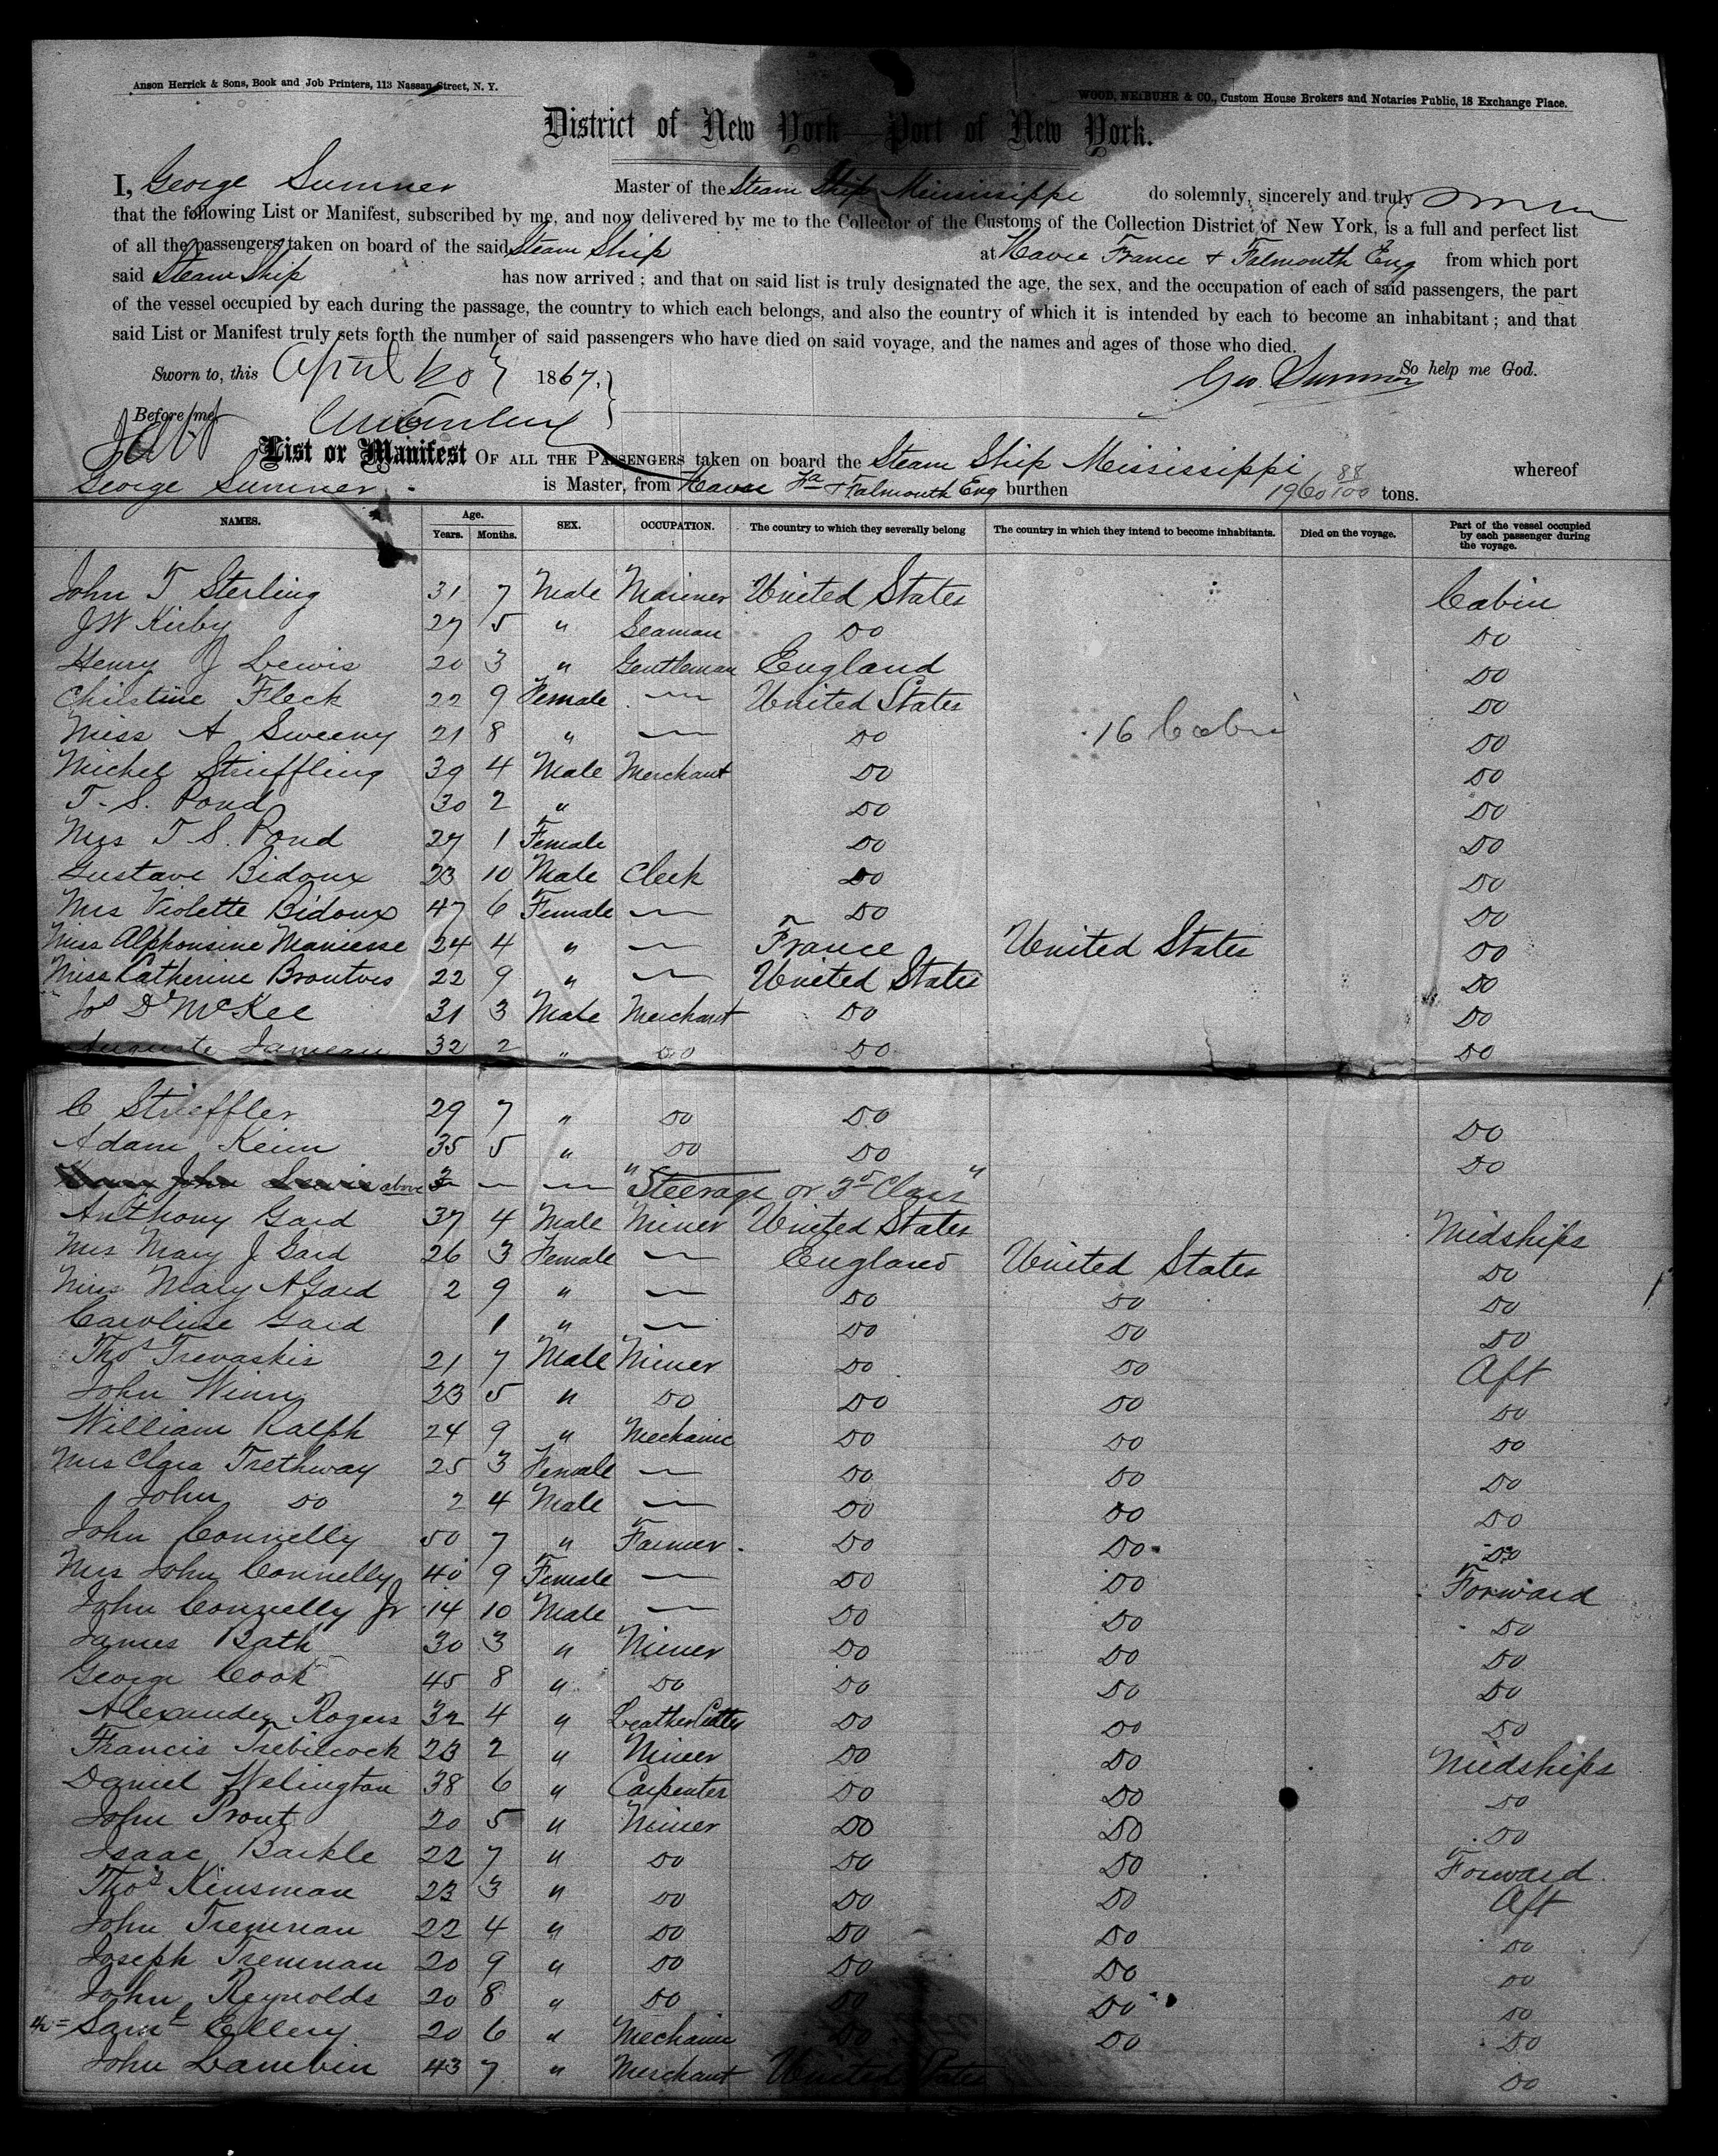 Anson Herrick & Sons, Book and Job Printers, 113 Nassau Street, N. Y.
WOOD, NEIBUHR & CO., Custom House Brokers and Notaries Public, 18 Exchange Place.
District of New York—Port of New York.
I, George Sumner Master of the Steam Ship Mississippi do solemnly, sincerely and truly
that the following List or Manifest, subscribed by me, and now delivered by me to the Collector of the Customs of the Collection District of New York, is a full and perfect list
of all the passengers taken on board of the said Steam Ship at Havre France & Falmouth Eng from which port
said Steam Ship has now arrived ; and that on said list is truly designated the age, the sex, and the occupation of each of said passengers, the part
of the vessel occupied by each during the passage, the country to which each belongs, and also the country of which it is intended by each to become an inhabitant ; and that
said List or Manifest truly sets forth the number of said passengers who have died on said voyage, and the names and ages of those who died.
Sworn to, this April 1867, Geo. Sumner So help me God.
Before me
List or Manifest OF ALL THE PASSENGERS taken on board the Steam Ship Mississippi whereof
George Sumner is Master, from Havre Fa & Falmouth Eng burthen 1960 88/100 tons.
NAMES. Age. Years. Months. SEX. OCCUPATION. The country to which they severally belong The country in which they intend to become inhabitants. Died on the voyage. Part of the vessel occupied by each passenger during the voyage.
John T Sterling 31 7 Male Mariner United States Cabin
J W Kirby 27 5 " Seaman Do Do
Henry J Lewis 20 3 " Gentleman England Do
Christine Fleck 22 9 Female — United States Do
Miss A Sweeny 21 8 " — Do 16 Cabin Do
Michel Strieffling 39 4 Male Merchant Do Do
T. S. Pond 30 2 " Do Do
Mrs T S. Pond 27 1 Female Do Do
Gustave Bidoux 23 10 Male Clerk Do Do
Mrs Violette Bidoux 47 6 Female — Do Do
Miss Alphonsine Maniesse 24 4 " — France United States Do
Miss Catherine Broutves 22 9 " — United States Do
Jos D McKee 31 3 Male Merchant Do Do
Auguste Jameau 32 2 " Do Do Do
C Strieffler 29 7 " Do Do Do
Adam Keim 35 5 " Do Do Do
above — — "Steerage or 3d Class"
Anthony Gard 37 4 Male Miner United States Midships
Mrs Mary J Gard 26 3 Female — England United States Do
Miss Mary A Gard 2 9 " — Do Do Do
Caroline Gard 1 " — Do Do Do
Thos Trevaskis 21 7 Male Miner Do Do Aft
John Winn 23 5 " Do Do Do Do
William Ralph 24 9 " Mechanic Do Do Do
Mrs Clara Trethway 25 3 Female — Do Do Do
John Do 2 4 Male — Do Do Do
John Connelly 50 7 " Farmer Do Do Do
Mrs John Connelly 40 9 Female — Do Do Forward
John Connelly Jr 14 10 Male — Do Do Do
James Bath 30 3 " Miner Do Do Do
George Cook 45 8 " Do Do Do Do
Alexander Rogers 32 4 " Leather Cutter Do Do Do
Francis Trebilcock 23 2 " Miner Do Do Midships
Daniel Welington 38 6 " Carpenter Do Do Do
John Prout 20 5 " Miner Do Do Do
Isaac Barkle 22 7 " Do Do Do Forward
Thos Kinsman 23 3 " Do Do Do Aft
John Tremnan 22 4 " Do Do Do Do
Joseph Tremnan 20 9 " Do Do Do Do
John Reynolds 20 8 " Do Do Do Do
Saml Ellery 20 6 " Mechanic Do Do Do
John Lambin 43 7 " Merchant United States Do